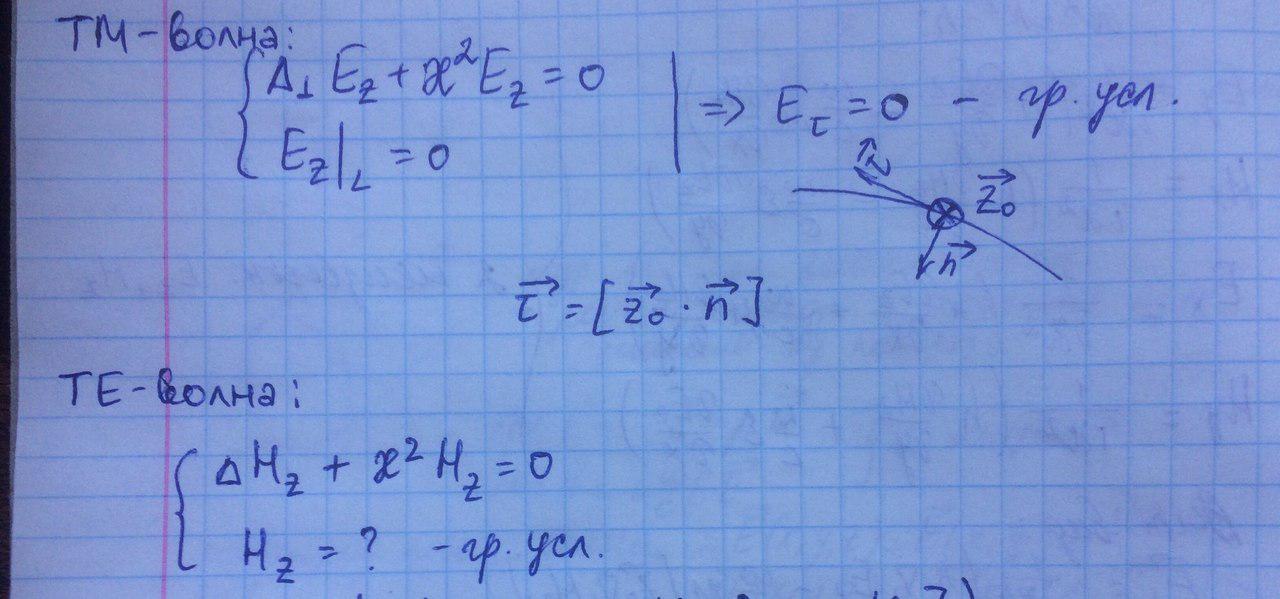 ТМ-волна:
Δ⊥ E_z + ϰ² E_z = 0
E_z|_L = 0
⇒ E_τ = 0 - гр. усл.
τ⃗
z⃗₀
n⃗
τ⃗ = [z⃗₀ · n⃗]
ТЕ-волна:
Δ H_z + ϰ² H_z = 0
H_z = ? - гр. усл.